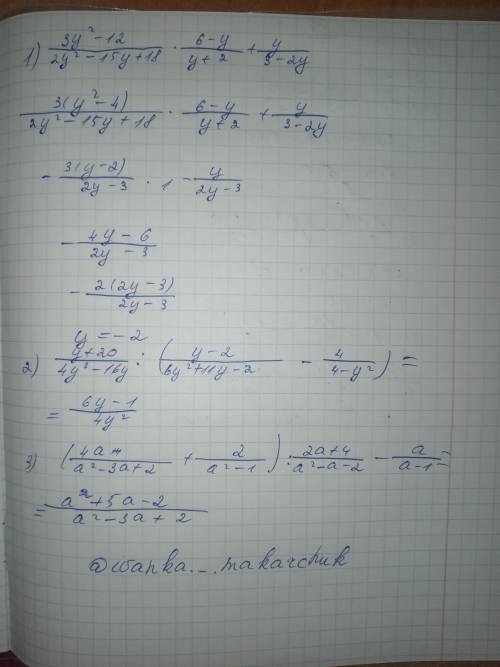 1) \frac{3y^2-12}{2y^2-15y+18} · \frac{6-y}{y+2} + \frac{y}{3-2y}
\frac{3(y^2-4)}{2y^2-15y+18} · \frac{6-y}{y+2} + \frac{y}{3-2y}
- \frac{3(y-2)}{2y-3} · 1 - \frac{y}{2y-3}
- \frac{4y-6}{2y-3}
- \frac{2(2y-3)}{2y-3}
y = -2
2) \frac{y+20}{4y^2-16y} : ( \frac{y-2}{6y^2+11y-2} - \frac{4}{4-y^2} ) =
= \frac{6y-1}{4y^2}
3) ( \frac{4a}{a^2-3a+2} + \frac{2}{a^2-1} ) : \frac{2a+4}{a^2-a-2} - \frac{a}{a-1} =
= \frac{a^2+5a-2}{a^2-3a+2}